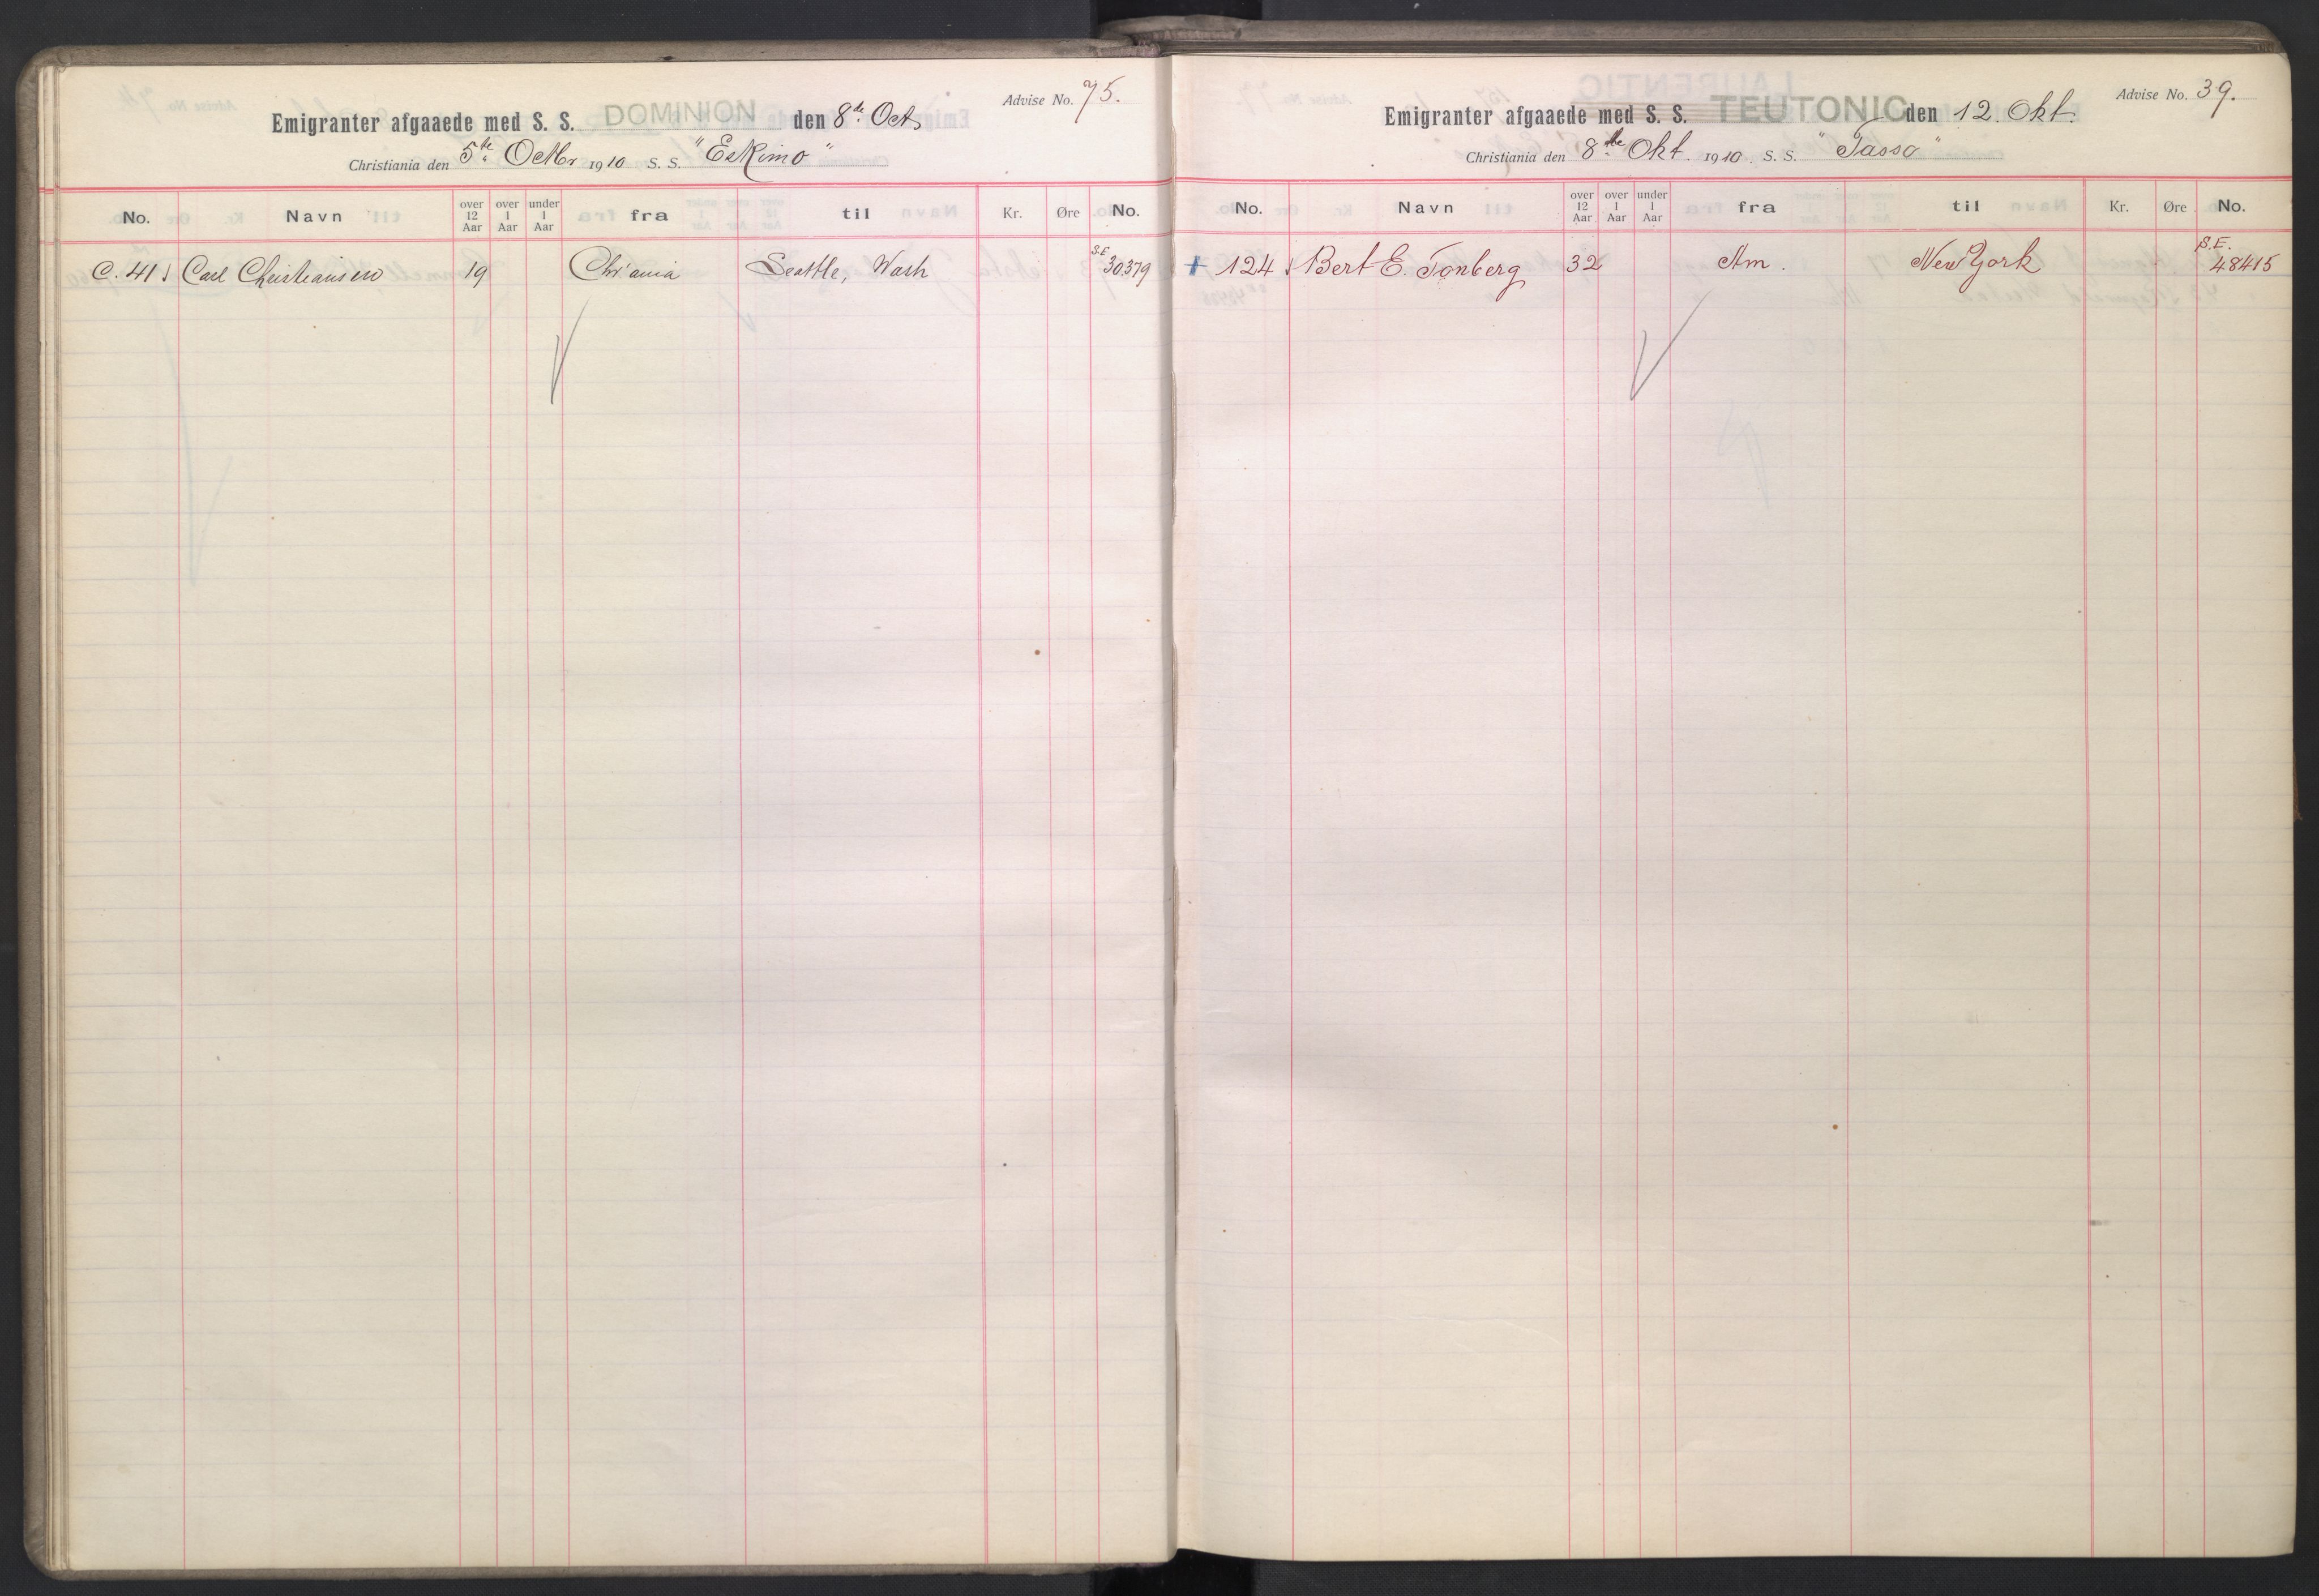 Advise No. 75.
Emigranter afgaaede med S. S. DOMINION den 8de Oct.
Christiania den 5te Octbr 1910 S. S. "Eskimo"
No. Navn over 12 Aar over 1 Aar under 1 Aar fra til Kr. Øre No.
C. 41 Carl Christiansen 19 Chr'ania Seattle, Wash S.E. 30379
Advise No. 39.
Emigranter afgaaede med S. S. TEUTONIC den 12. Okt.
Christiania den 8de Okt. 1910. S. S. "Tasso"
No. Navn over 12 Aar over 1 Aar under 1 Aar fra til Kr. Øre No.
+ 124 Bert E. Tonberg 32 Am. New York S.E. 48415